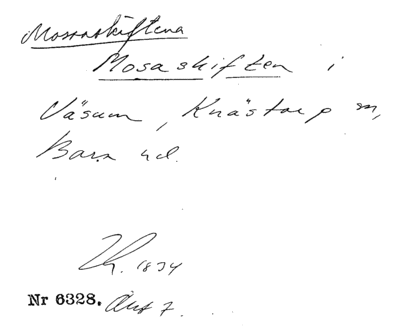 Mossaskiftena
Mosaskiften i
Väsum, Knästorp sn,
Bara hd.
1834
Nr 6328. Akt 7.